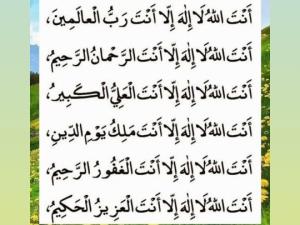 أَنْتَ اللهُ لَا إِلٰهَ إِلَّا أَنْتَ رَبُّ الْعالَمِينَ،
أَنْتَ اللهُ لَا إِلٰهَ إِلَّا أَنْتَ الرَّحْمَانُ الرَّحِيمُ،
أَنْتَ اللهُ لَا إِلٰهَ إِلَّا أَنْتَ الْعَلِيُّ الْكَبِيرُ،
أَنْتَ اللهُ لَا إِلٰهَ إِلَّا أَنْتَ مَلِكُ يَوْمِ الدِّينِ،
أَنْتَ اللهُ لَا إِلٰهَ إِلَّا أَنْتَ الْغَفُورُ الرَّحِيمُ،
أَنْتَ اللهُ لَا إِلٰهَ إِلَّا أَنْتَ الْعَزِيزُ الْحَكِيمُ،